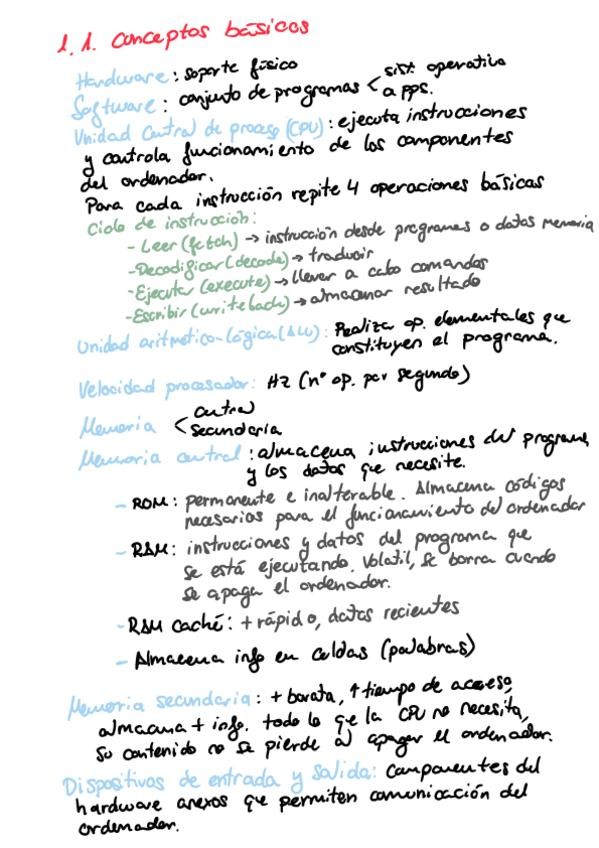 1.1. Conceptos básicos
Hardware: soporte físico
Software: conjunto de programas < sist. operativo
apps.
Unidad Central de proceso (CPU): ejecuta instrucciones
y controla funcionamiento de los componentes
del ordenador.
Para cada instrucción repite 4 operaciones básicas
Ciclo de instrucción:
- Leer (fetch) → instrucción desde programas o datos memoria
- Decodificar (decode) → traducir
- Ejecutar (execute) → llevar a cabo comandos
- Escribir (writeback) → almacenar resultado
Unidad aritmético-lógica (ALU): Realiza op. elementales que
constituyen el programa.
Velocidad procesador: HZ (nº op. por segundo)
Memoria < central
secundaria
Memoria central: almacena instrucciones del programa
y los datos que necesite.
- ROM: permanente e inalterable. Almacena códigos
necesarios para el funcionamiento del ordenador
- RAM: instrucciones y datos del programa que
se está ejecutando. Volatil, se borra cuando
se apaga el ordenador.
- RAM caché: + rápido, datos recientes
- Almacena info en celdas (palabras)
Memoria secundaria: + barata, ↑ tiempo de acceso,
almacena + info. todo lo que la CPU no necesita,
su contenido no se pierde al apagar el ordenador.
Dispositivos de entrada y salida: componentes del
hardware anexos que permiten comunicación del
ordenador.